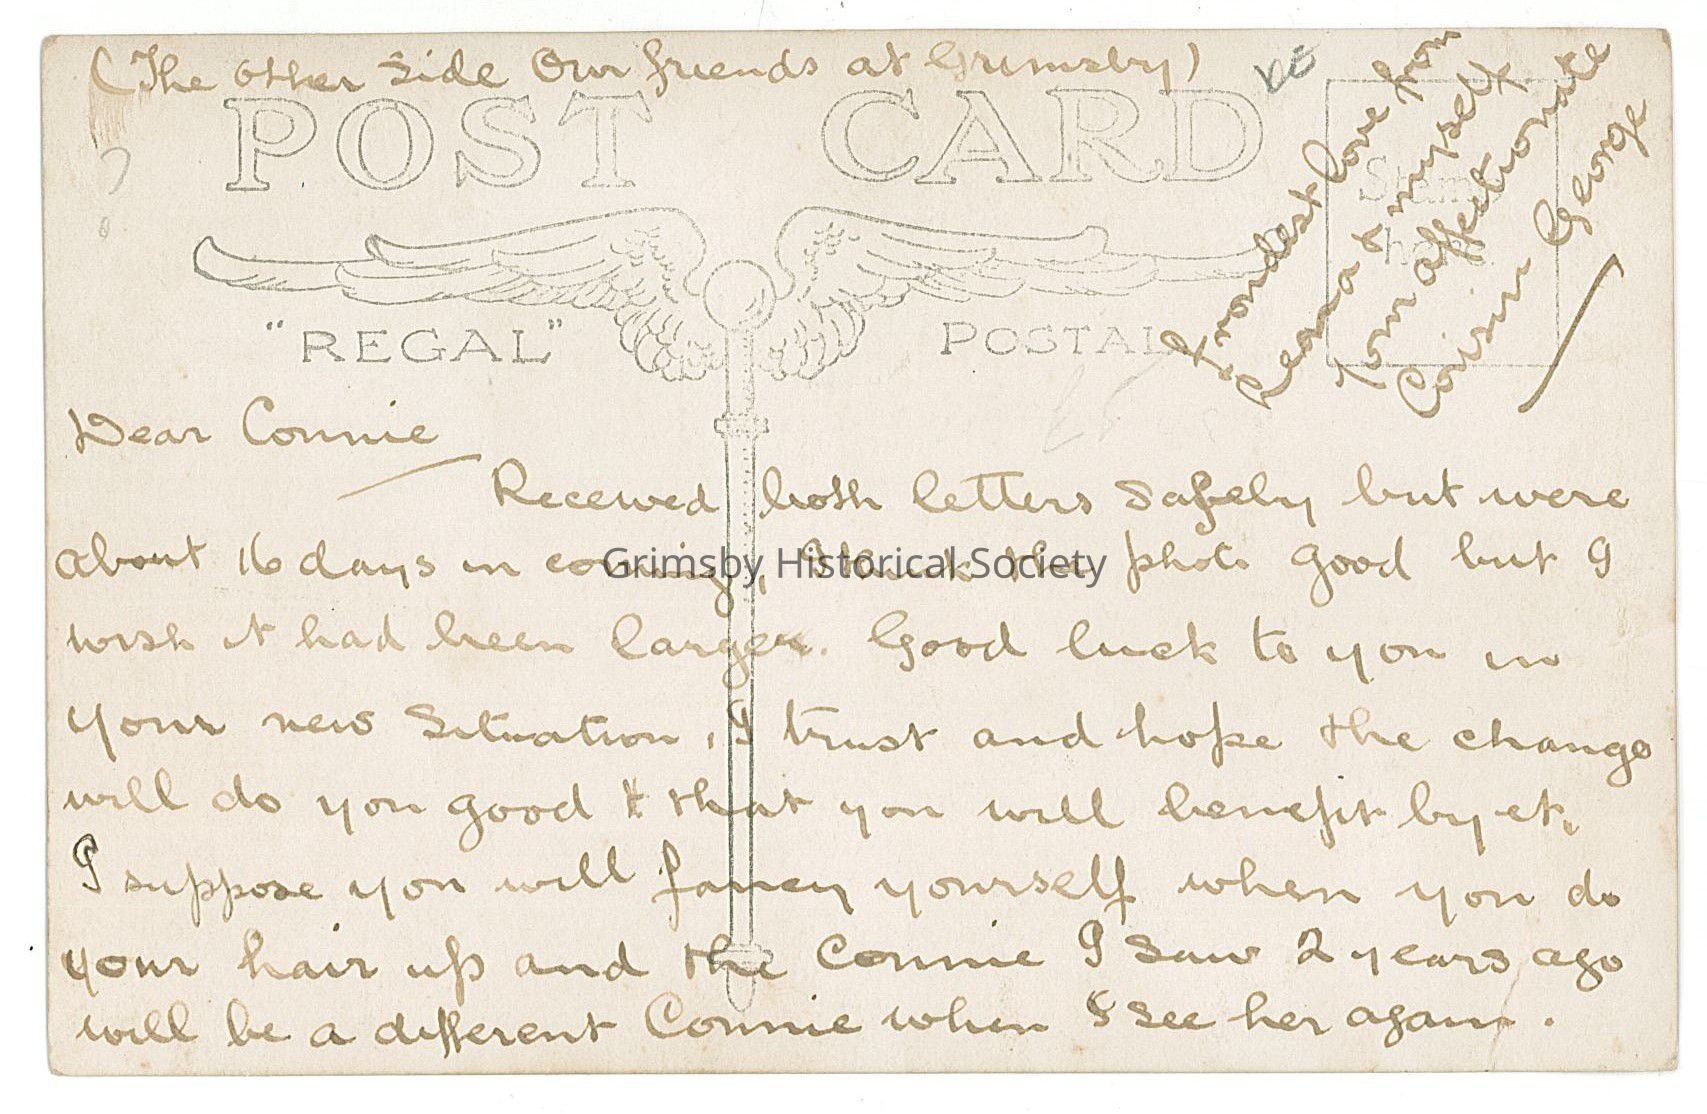 (The other side Our friends at Grimsby)
POST CARD
"REGAL" POSTAL
Stamp
here
Fondest love from
Leona & myself
Your affectionate
Cousin George
Dear Connie
Received both letters safely but were
about 16 days in coming, think the photo good but I
wish it had been larger. Good luck to you in
your new situation, I trust and hope the change
will do you good & that you will benefit by it,
I suppose you will fancy yourself when you do
your hair up and the Connie I saw 2 years ago
will be a different Connie when I see her again.
Grimsby Historical Society